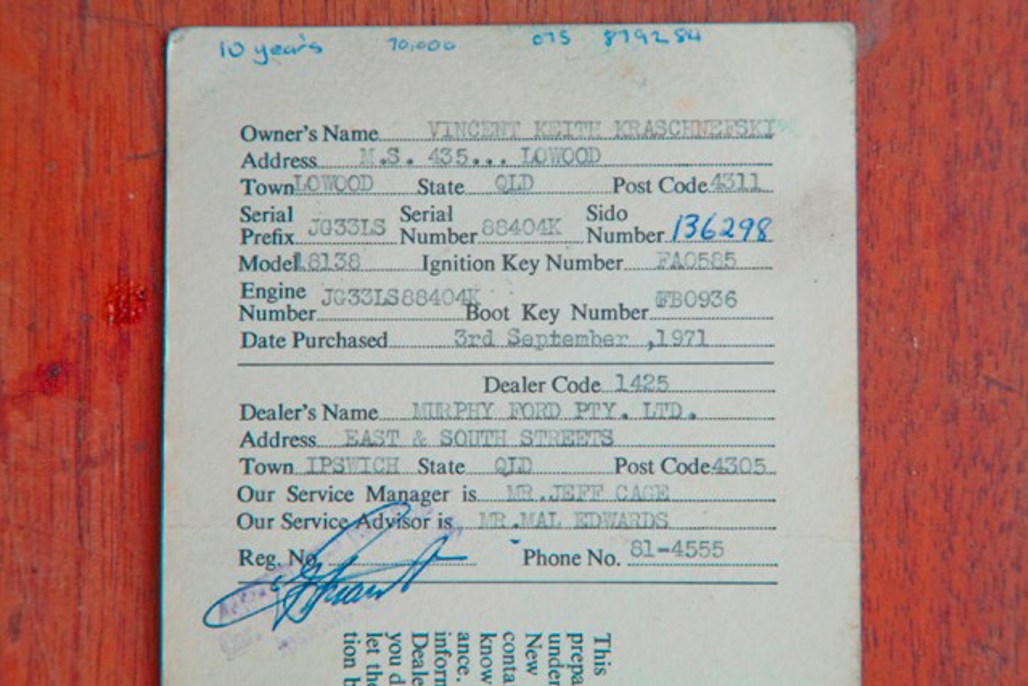 10 years 70,000 075 879284
Owner's Name VINCENT KEITH KRASCHNEFSKI
Address M.S. 435... LOWOOD
Town LOWOOD State QLD Post Code 4311
Serial Prefix JG33LS Serial Number 88404K Sido Number 136298
Model 18138 Ignition Key Number FA0585
Engine Number JG33LS88404K Boot Key Number FB0936
Date Purchased 3rd September ,1971
Dealer Code 1425
Dealer's Name MURPHY FORD PTY. LTD.
Address EAST & SOUTH STREETS
Town IPSWICH State QLD Post Code 4305
Our Service Manager is MR.JEFF CAGE
Our Service Advisor is MR.MAL EDWARDS
Reg. No. Phone No. 81-4555
This
prepa
under
New
conta
know
ance.
inform
Deale
you d
let the
tion b